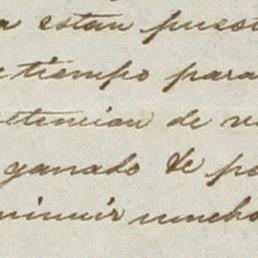 a estan puest
tiempo para
etencion de
ganado de po
inuir mucho